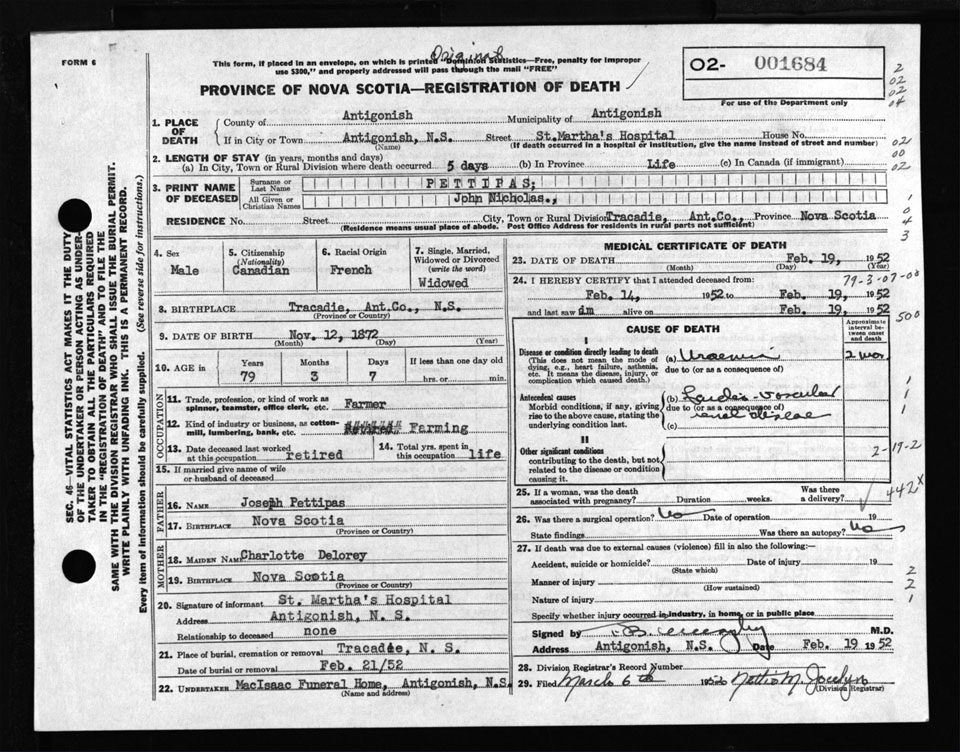 Original
FORM 6
This form, if placed in an envelope, on which is printed "Dominion Statistics—Free, penalty for improper
use $300," and properly addressed will pass through the mail "FREE"
O2- 001684
For use of the Department only
PROVINCE OF NOVA SCOTIA—REGISTRATION OF DEATH
2
02
02
04
02
00
02
1
0
4
3
SEC. 46—VITAL STATISTICS ACT MAKES IT THE DUTY
OF THE UNDERTAKER OR PERSON ACTING AS UNDER-
TAKER TO OBTAIN ALL THE PARTICULARS REQUIRED
IN THE "REGISTRATION OF DEATH" AND TO FILE THE
SAME WITH THE DIVISION REGISTRAR WHO SHALL ISSUE THE BURIAL PERMIT.
WRITE PLAINLY WITH UNFADING INK. THIS IS A PERMANENT RECORD.
Every item of information should be carefully supplied. (See reverse side for instructions.)
1. PLACE OF DEATH
County of Antigonish Municipality of Antigonish
If in City or Town Antigonish, N.S. Street St.Martha's Hospital House No.
(Name) (If death occurred in a hospital or institution, give the name instead of street and number)
2. LENGTH OF STAY (in years, months and days)
(a) In City, Town or Rural Division where death occurred 5 days (b) In Province Life (c) In Canada (if immigrant)
3. PRINT NAME OF DECEASED
Surname or Last Name PETTIPAS;
All Given or Christian Names John Nicholas.,
RESIDENCE No. Street City, Town or Rural Division Tracadie, Ant.Co., Province Nova Scotia
(Residence means usual place of abode. Post Office Address for residents in rural parts not sufficient)
4. Sex
Male
5. Citizenship
(Nationality)
Canadian
6. Racial Origin
French
7. Single, Married,
Widowed or Divorced
(write the word)
Widowed
8. BIRTHPLACE Tracadie, Ant.Co., N.S.
(Province or Country)
9. DATE OF BIRTH Nov. 12, 1872
(Month) (Day) (Year)
10. AGE in Years Months Days If less than one day old
79 3 7 hrs. or min.
OCCUPATION
11. Trade, profession, or kind of work as
spinner, teamster, office clerk, etc. Farmer
12. Kind of industry or business, as cotton-
mill, lumbering, bank, etc. Farming
13. Date deceased last worked
at this occupation retired
14. Total yrs. spent in
this occupation life
15. If married give name of wife
or husband of deceased
FATHER
16. NAME Joseph Pettipas
17. BIRTHPLACE Nova Scotia
(Province or Country)
MOTHER
18. MAIDEN NAME Charlotte Delorey
19. BIRTHPLACE Nova Scotia
(Province or Country)
20. Signature of informant St. Martha's Hospital
Address Antigonish, N. S.
Relationship to deceased none
21. Place of burial, cremation or removal Tracadie, N. S.
Date of burial or removal Feb. 21/52
22. UNDERTAKER MacIsaac Funeral Home, Antigonish, N.S.
(Name and address)
MEDICAL CERTIFICATE OF DEATH
23. DATE OF DEATH Feb. 19, 1952
(Month) (Day) (Year)
24. I HEREBY CERTIFY that I attended deceased from: 79-3-07-00
Feb. 14, 1952 to Feb. 19, 1952
and last saw im alive on Feb. 19, 1952
500
CAUSE OF DEATH
Approximate
interval be-
tween onset
and death
I
Disease or condition directly leading to death (a) Uraemia
(This does not mean the mode of
dying, e.g., heart failure, asthenia,
etc. It means the disease, injury, or
complication which caused death.)
due to (or as a consequence of)
Antecedent causes
Morbid conditions, if any, giving
rise to the above cause, stating the
underlying condition last.
(b) Cardio-vascular
due to (or as a consequence of)
renal disease
(c)
1
1
1
II
Other significant conditions
contributing to the death, but not
related to the disease or condition
causing it.
2-19-2
25. If a woman, was the death
associated with pregnancy? Duration weeks. Was there
a delivery?
442X
26. Was there a surgical operation? No Date of operation 19
State findings Was there an autopsy? No
27. If death was due to external causes (violence) fill in also the following:—
Accident, suicide or homicide? Date of injury 19
(State which)
Manner of injury
(How sustained)
Nature of injury
Specify whether injury occurred in industry, in home, or in public place
2
2
1
Signed by M.D.
Address Antigonish, N.S. Date Feb. 19 1952
28. Division Registrar's Record Number
29. Filed March 6th 1952 Nettie M. Jocelyn
(Division Registrar)